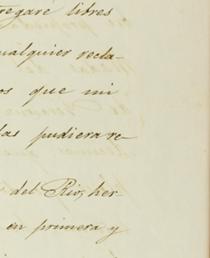 tregare libres
cualquier recla-
os que mi
las pudiera re
del Rio, her
en primera y